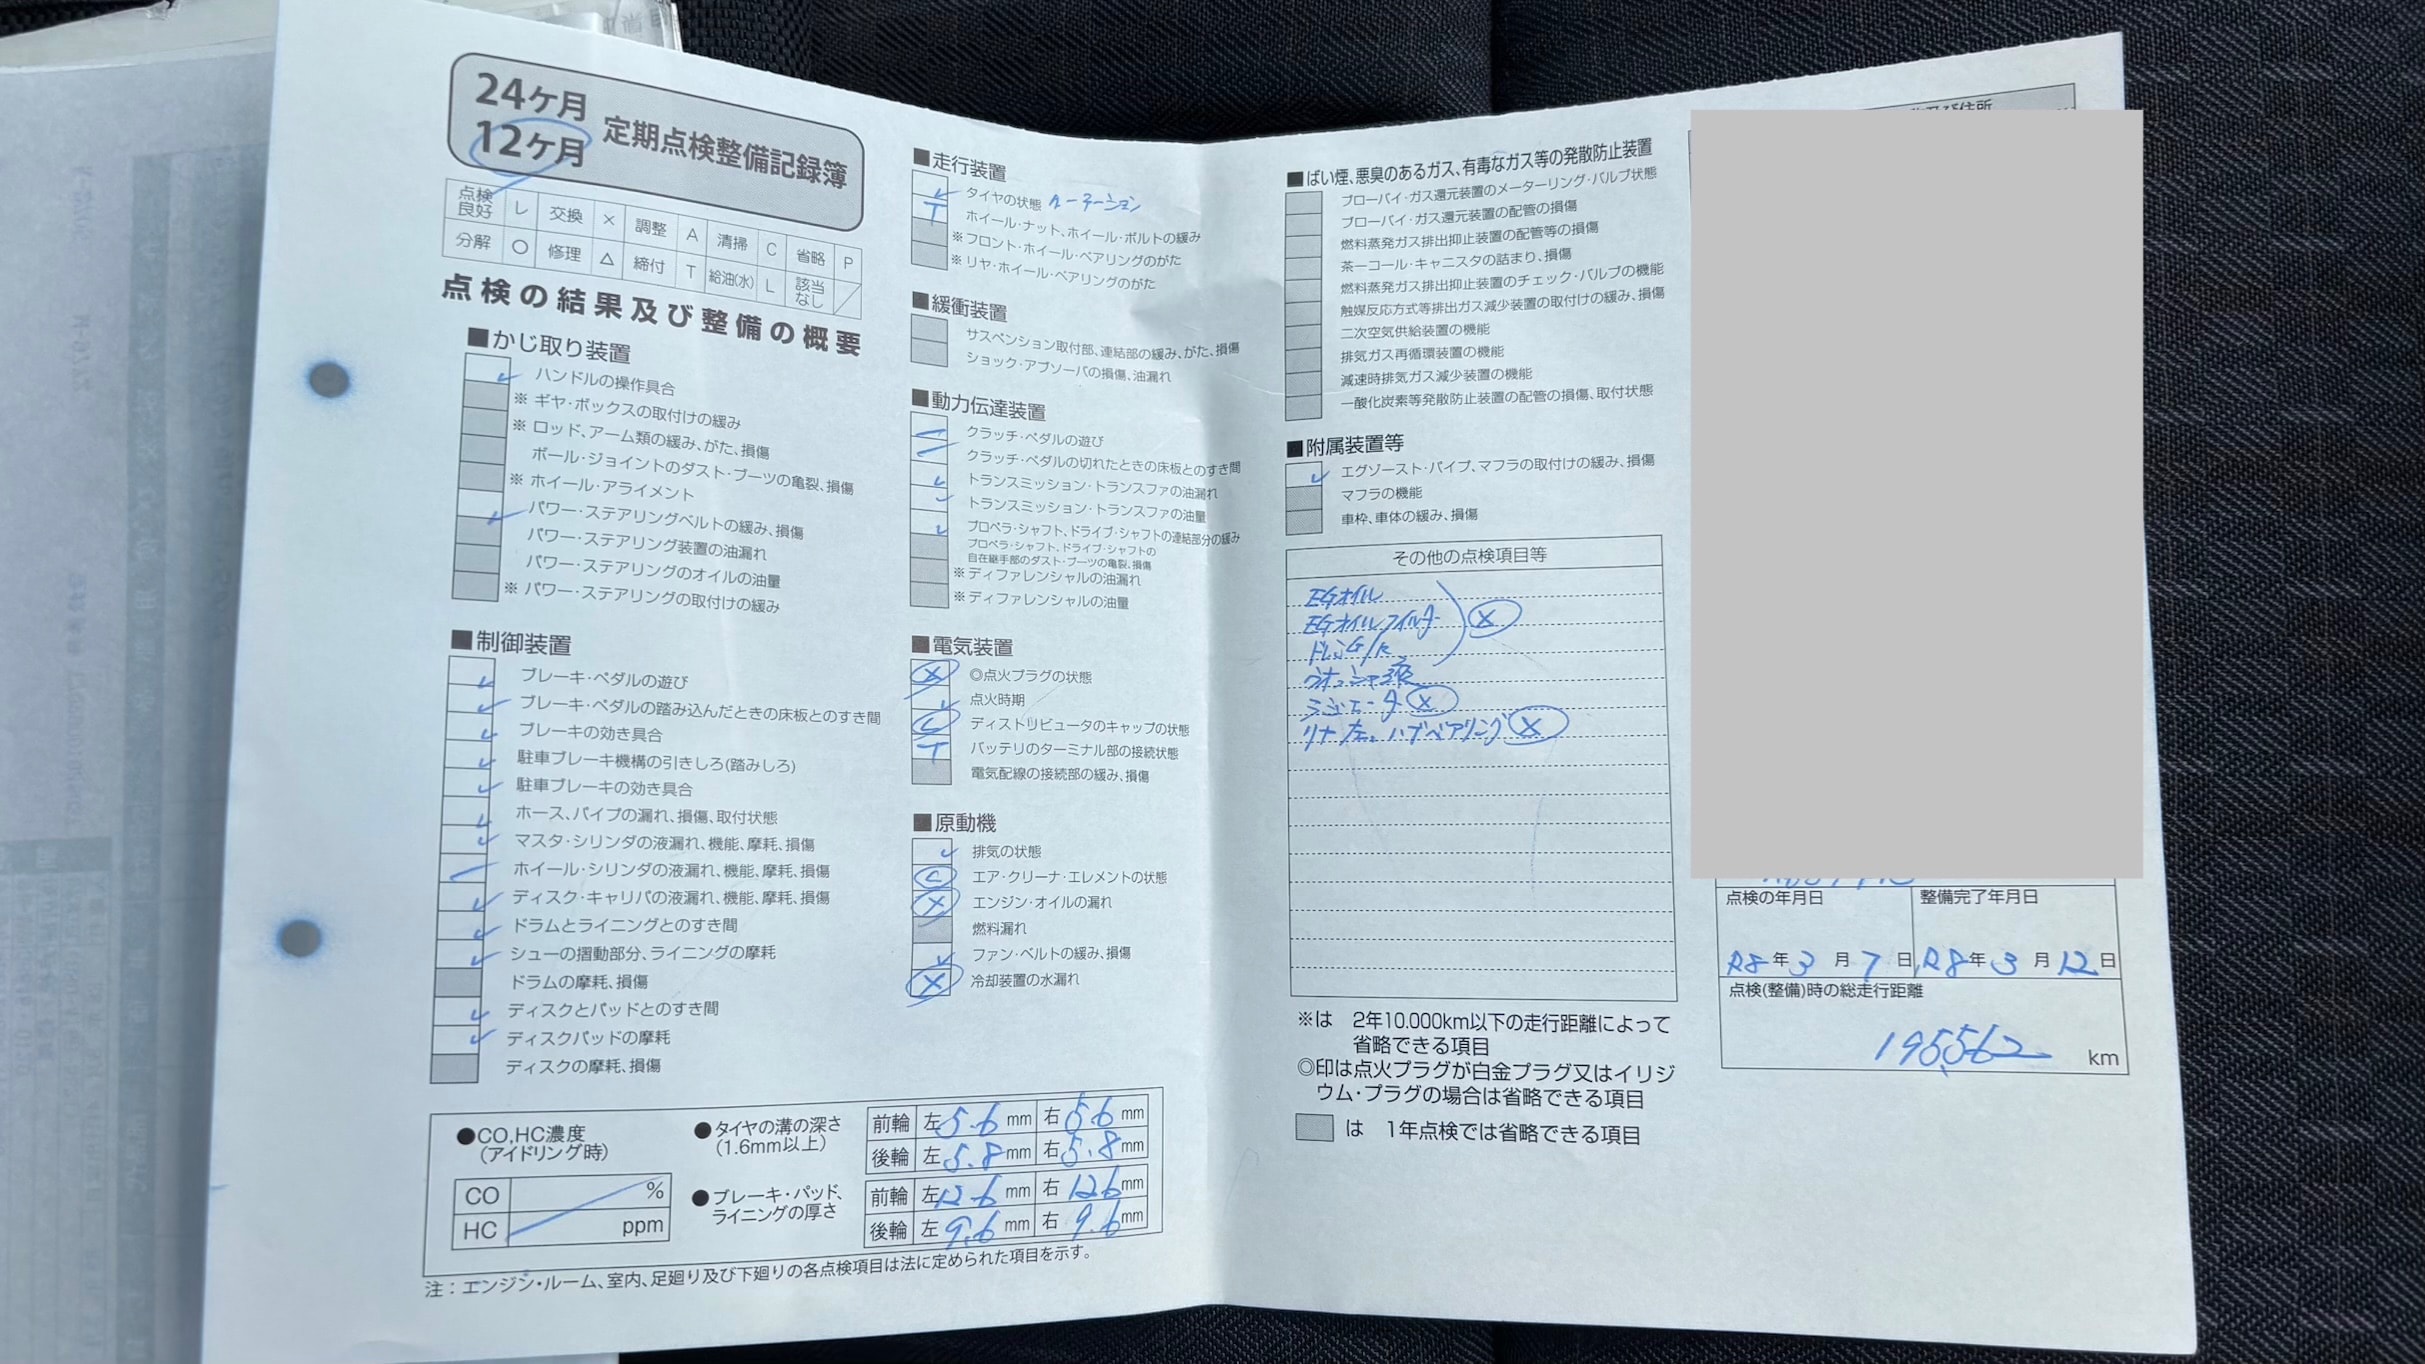 24ヶ月
12ヶ月
定期点検整備記録簿
点検良好 レ 交換 × 調整 A 清掃 C 省略 P
分解 ○ 修理 △ 締付 T 給油(水) L 該当なし ／
点検の結果及び整備の概要
■かじり取り装置
ハンドルの操作具合
※ ギヤ・ボックスの取付けの緩み
※ ロッド、アーム類の緩み、がた、損傷
ボール・ジョイントのダスト・ブーツの亀裂、損傷
※ ホイール・アライメント
パワー・ステアリングベルトの緩み、損傷
パワー・ステアリング装置の油漏れ
パワー・ステアリングのオイルの油量
※ パワー・ステアリングの取付けの緩み
■制御装置
ブレーキ・ペダルの遊び
ブレーキ・ペダルの踏み込んだときの床板とのすき間
ブレーキの効き具合
駐車ブレーキ機構の引きしろ(踏みしろ)
駐車ブレーキの効き具合
ホース、パイプの漏れ、損傷、取付状態
マスタ・シリンダの液漏れ、機能、摩耗、損傷
ホイール・シリンダの液漏れ、機能、摩耗、損傷
ディスク・キャリパの液漏れ、機能、摩耗、損傷
ドラムとライニングとのすき間
シューの摺動部分、ライニングの摩耗
ドラムの摩耗、損傷
ディスクとパッドとのすき間
ディスクパッドの摩耗
ディスクの摩耗、損傷
■走行装置
レ タイヤの状態 ローテーション
T ホイール・ナット、ホイール・ボルトの緩み
※ フロント・ホイール・ベアリングのがた
※ リヤ・ホイール・ベアリングのがた
■緩衝装置
サスペンション取付部、連結部の緩み、がた、損傷
ショック・アブソーバの損傷、油漏れ
■動力伝達装置
クラッチ・ペダルの遊び
クラッチ・ペダルの切れたときの床板とのすき間
トランスミッション・トランスファの油漏れ
トランスミッション・トランスファの油量
プロペラ・シャフト、ドライブ・シャフトの連結部分の緩み
プロペラ・シャフト、ドライブ・シャフトの
自在継手部のダスト・ブーツの亀裂、損傷
※ ディファレンシャルの油漏れ
※ ディファレンシャルの油量
■電気装置
× ◎点火プラグの状態
レ 点火時期
C ディストリビュータのキャップの状態
T バッテリのターミナル部の接続状態
電気配線の接続部の緩み、損傷
■原動機
レ 排気の状態
C エア・クリーナ・エレメントの状態
× エンジン・オイルの漏れ
燃料漏れ
レ ファン・ベルトの緩み、損傷
× 冷却装置の水漏れ
●CO,HC濃度
(アイドリング時)
CO %
HC ppm
●タイヤの溝の深さ
(1.6mm以上)
前輪 左 5.6 mm 右 5.6 mm
後輪 左 5.8 mm 右 5.8 mm
●ブレーキ・パッド、
ライニングの厚さ
前輪 左 12.6 mm 右 12.6 mm
後輪 左 9.6 mm 右 9.6 mm
注：エンジン・ルーム、室内、足廻り及び下廻りの各点検項目は法に定められた項目を示す。
■ばい煙、悪臭のあるガス、有毒なガス等の発散防止装置
ブローバイ・ガス還元装置のメーターリング・バルブ状態
ブローバイ・ガス還元装置の配管の損傷
燃料蒸発ガス排出抑止装置の配管等の損傷
茶一コール・キャニスタの詰まり、損傷
燃料蒸発ガス排出抑止装置のチェック・バルブの機能
触媒反応方式等排出ガス減少装置の取付けの緩み、損傷
二次空気供給装置の機能
排気ガス再循環装置の機能
減速時排気ガス減少装置の機能
一酸化炭素等発散防止装置の配管の損傷、取付状態
■附属装置等
レ エグゾースト・パイプ、マフラの取付けの緩み、損傷
マフラの機能
車枠、車体の緩み、損傷
その他の点検項目等
EGオイル
EGオイルフィルタ ×
ドレンG/K
ウォッシャ液
ラジエータ ×
リヤ左 ハブベアリング ×
※は 2年10.000km以下の走行距離によって
省略できる項目
◎印は点火プラグが白金プラグ又はイリジ
ウム・プラグの場合は省略できる項目
は 1年点検では省略できる項目
及び住所
点検の年月日 整備完了年月日
R8年3月7日 R8年3月12日
点検(整備)時の総走行距離
195,562 km